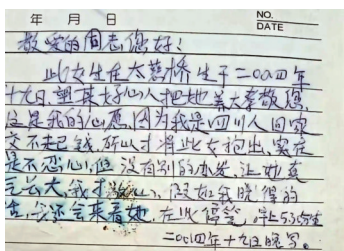 年 月 日 NO.
DATE
敬爱的同志您好！
此女生在太慈桥生于二00四年
十九日，望某好心人把她养大孝敬您，
这是我的心愿，因为我是四川人回家
又不起钱，所以才将此女抱出，实在
是不忍心，但没有别的办法，让她
去 我才 心，假如我晓得的
会还会来看她，在此
二00四年十九日晚写。